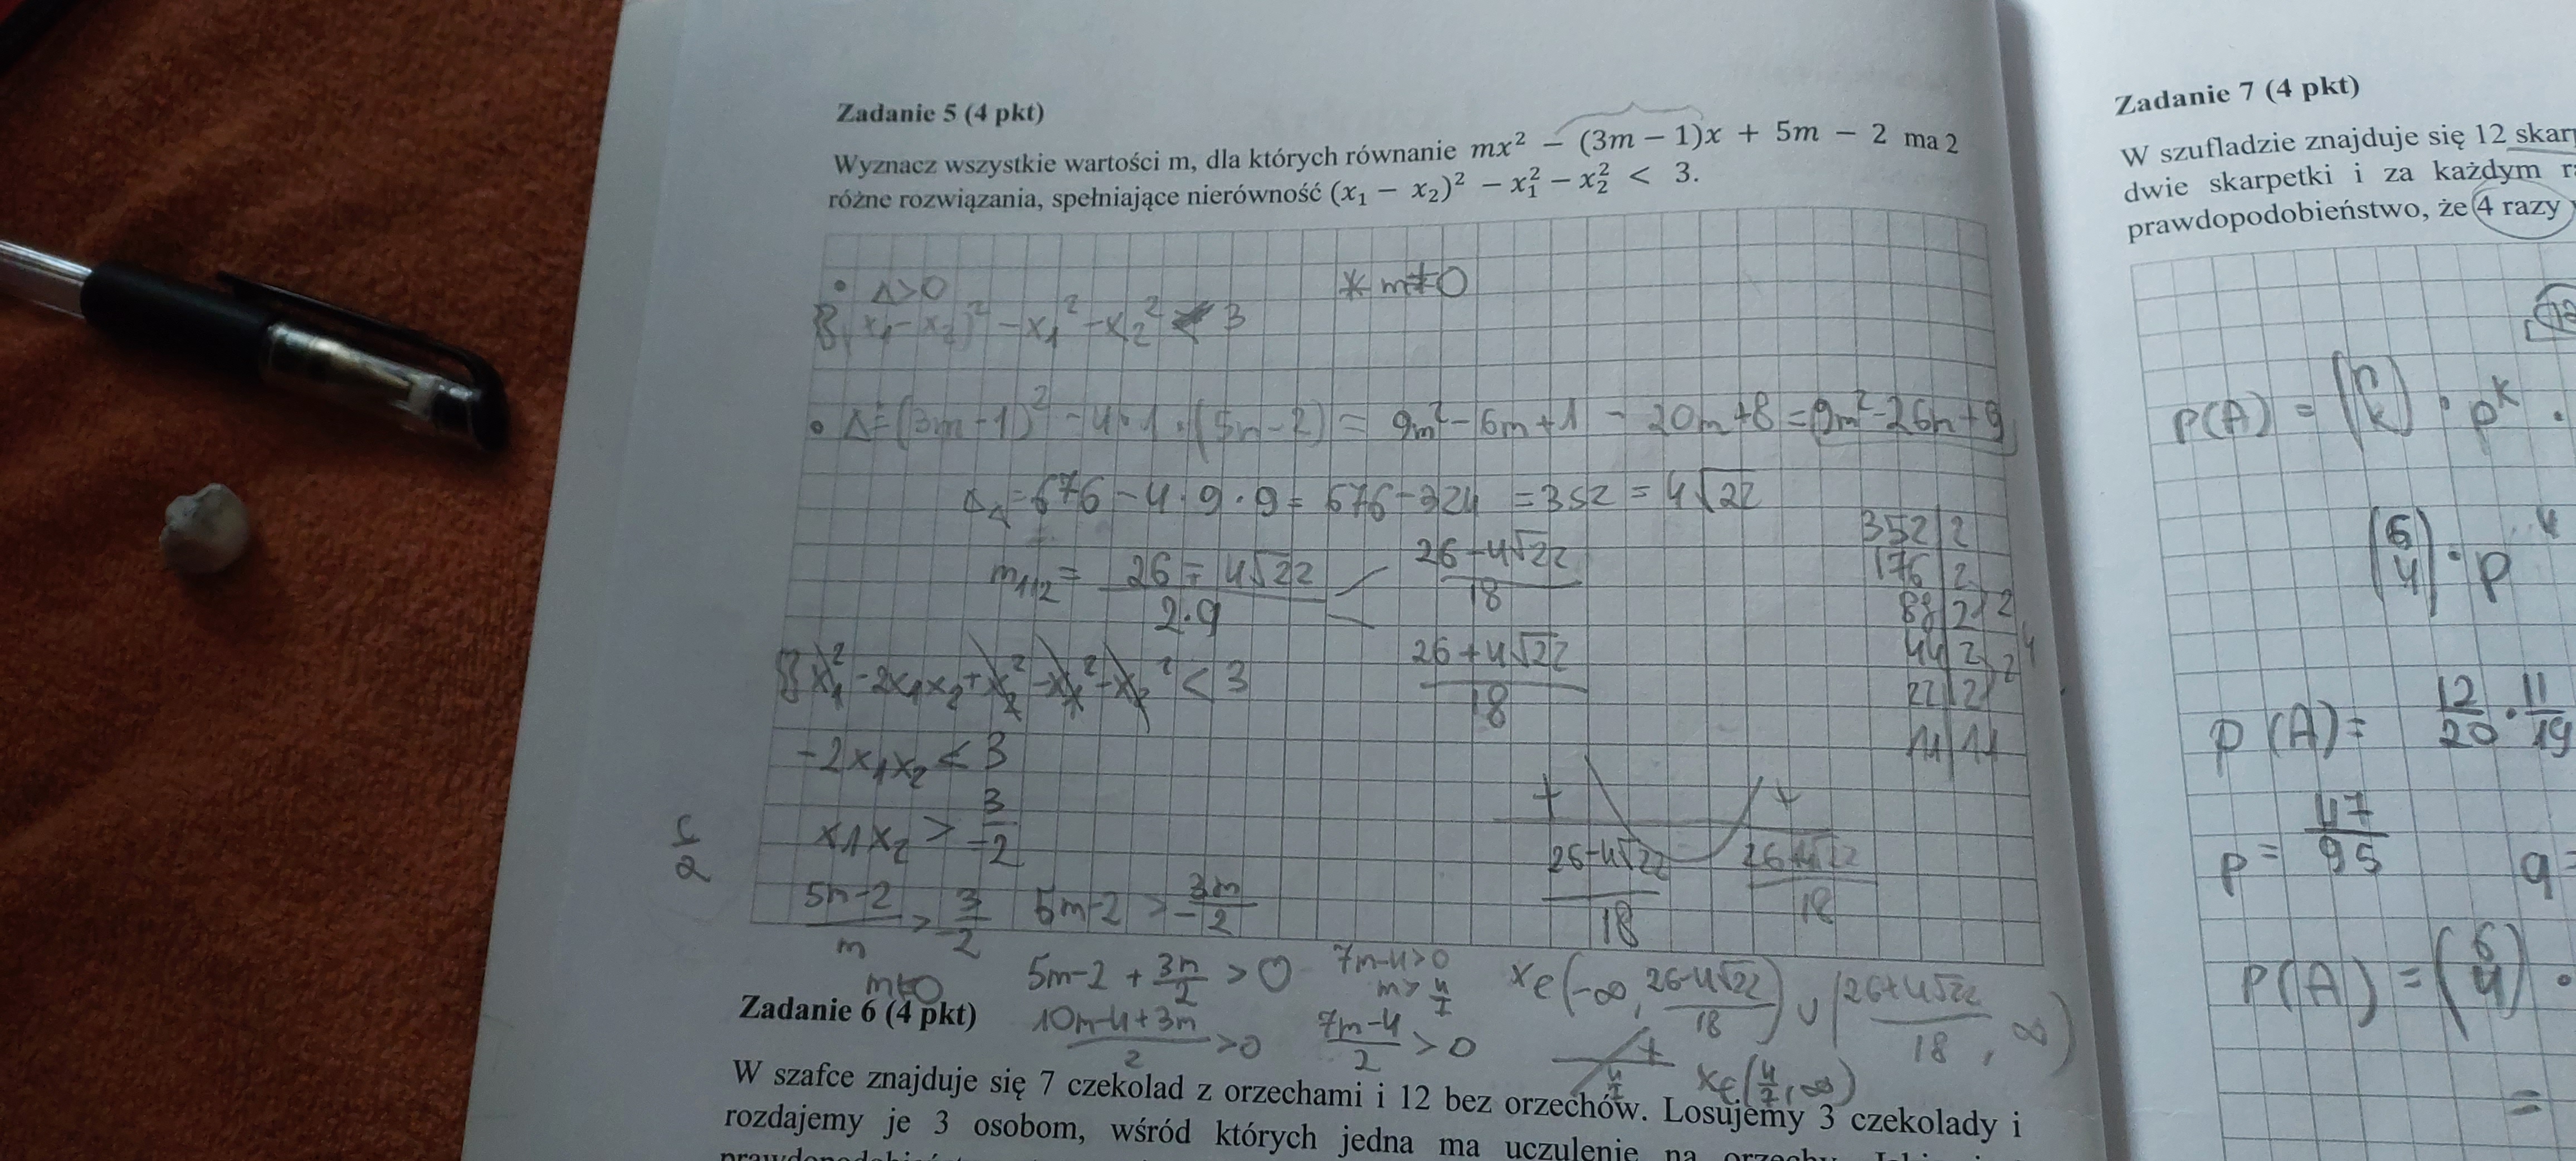 Zadanie 5 (4 pkt)
Wyznacz wszystkie wartości m, dla których równanie mx² − (3m − 1)x + 5m − 2 ma 2
różne rozwiązania, spełniające nierówność (x₁ − x₂)² − x₁² − x₂² < 3.
• Δ>0
* m≠0
x₁-x₂)² -x₁²-x₂² < 3
• Δ=(3m-1)² -4·1·(5m-2) = 9m²-6m+1 - 20m+8 = 9m²-26m+9
Δ_Δ=676-4·9·9= 676-324 =352 = 4√22
352|2
176|2
88|2
44|2
22|2
11|11
m₁,₂= 26∓4√22 / 2·9
26-4√22 / 18
26+4√22 / 18
x₁²-2x₁x₂+x₂²-x₁²-x₂² < 3
-2x₁x₂ < 3
x₁x₂ > 3/-2
+ +
26-4√22 / 18
26+4√22 / 18
5m-2 / m > 3 / -2
5m-2 > 3m / -2
m≠0
5m-2 + 3m/2 > 0
7m-4>0
m> 4/7
x∈(-∞, 26-4√22 / 18) ∪ (26+4√22 / 18, ∞)
10m-4+3m / 2 >0
7m-4 / 2 > 0
+
4/7
x∈(4/7, ∞)
Zadanie 6 (4 pkt)
W szafce znajduje się 7 czekolad z orzechami i 12 bez orzechów. Losujemy 3 czekolady i
rozdajemy je 3 osobom, wśród których jedna ma uczulenie na
Zadanie 7 (4 pkt)
W szufladzie znajduje się 12
dwie skarpetki i za każdym
prawdopodobieństwo, że 4 razy
P(A) = (n k) · p^k ·
(6 4) · p⁴
P(A)= 12/20 · 11/19
p= 47/95
P(A) = (6 4) ·
=